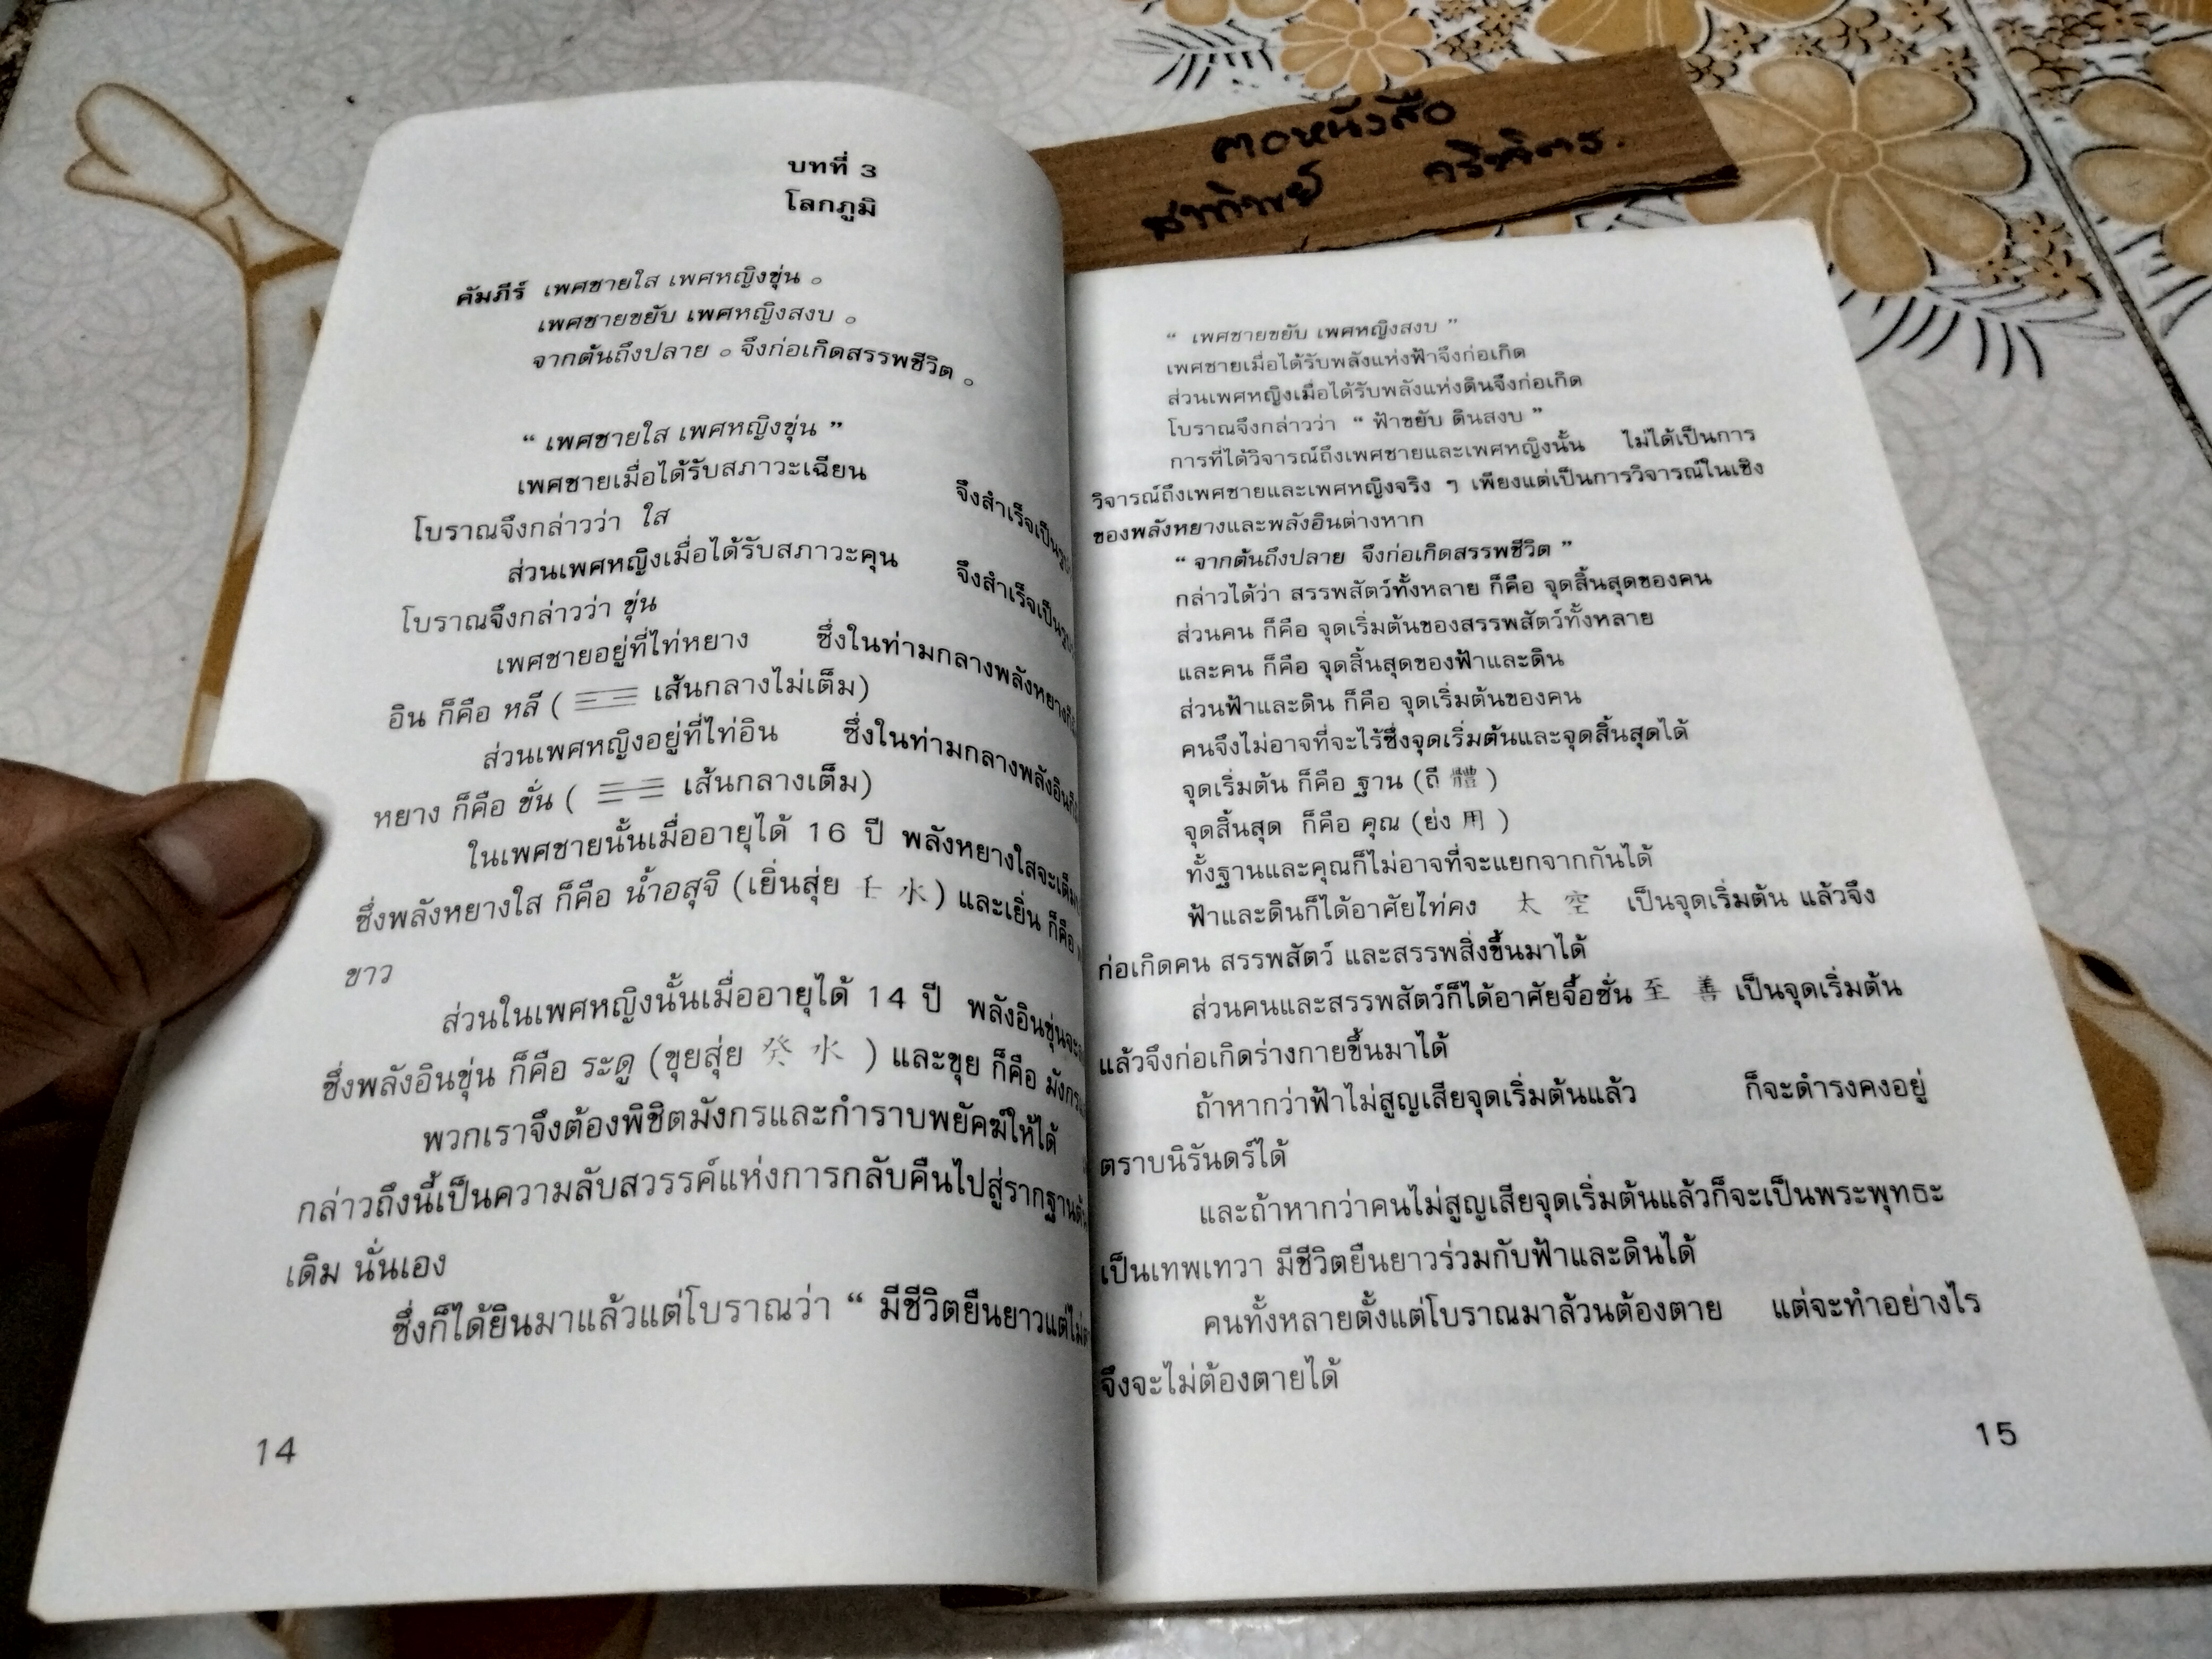 บทที่ 3
โลกภูมิ
คัมภีร์ เพศชายใส เพศหญิงขุ่น ๐
เพศชายขยับ เพศหญิงสงบ ๐
จากต้นถึงปลาย ๐ จึงก่อเกิดสรรพชีวิต ๐
“ เพศชายใส เพศหญิงขุ่น ”
เพศชายเมื่อได้รับสภาวะเฉียน จึงสำเร็จเป็น
โบราณจึงกล่าวว่า ใส
ส่วนเพศหญิงเมื่อได้รับสภาวะคุน จึงสำเร็จเป็น
โบราณจึงกล่าวว่า ขุ่น
เพศชายอยู่ที่ไท่หยาง ซึ่งในท่ามกลางพลังหยาง
อิน ก็คือ หลี ( ☲ เส้นกลางไม่เต็ม)
ส่วนเพศหญิงอยู่ที่ไท่อิน ซึ่งในท่ามกลางพลังอิน
หยาง ก็คือ ขั่น ( ☵ เส้นกลางเต็ม)
ในเพศชายนั้นเมื่ออายุได้ 16 ปี พลังหยางใสจะเต็ม
ซึ่งพลังหยางใส ก็คือ น้ำอสุจิ (เยิ่นสุ่ย 壬 水) และเยิ่น ก็คือ
ขาว
ส่วนในเพศหญิงนั้นเมื่ออายุได้ 14 ปี พลังอินขุ่นจะ
ซึ่งพลังอินขุ่น ก็คือ ระดู (ขุยสุ่ย 癸 水 ) และขุย ก็คือ มังกร
พวกเราจึงต้องพิชิตมังกรและกำราบพยัคฆ์ให้ได้
กล่าวถึงนี้เป็นความลับสวรรค์แห่งการกลับคืนไปสู่รากฐาน
เดิม นั่นเอง
ซึ่งก็ได้ยินมาแล้วแต่โบราณว่า “ มีชีวิตยืนยาวแต่ไม่
14
“ เพศชายขยับ เพศหญิงสงบ ”
เพศชายเมื่อได้รับพลังแห่งฟ้าจึงก่อเกิด
ส่วนเพศหญิงเมื่อได้รับพลังแห่งดินจึงก่อเกิด
โบราณจึงกล่าวว่า “ ฟ้าขยับ ดินสงบ ”
การที่ได้วิจารณ์ถึงเพศชายและเพศหญิงนั้น ไม่ได้เป็นการ
วิจารณ์ถึงเพศชายและเพศหญิงจริง ๆ เพียงแต่เป็นการวิจารณ์ในเชิง
ของพลังหยางและพลังอินต่างหาก
“ จากต้นถึงปลาย จึงก่อเกิดสรรพชีวิต ”
กล่าวได้ว่า สรรพสัตว์ทั้งหลาย ก็คือ จุดสิ้นสุดของคน
ส่วนคน ก็คือ จุดเริ่มต้นของสรรพสัตว์ทั้งหลาย
และคน ก็คือ จุดสิ้นสุดของฟ้าและดิน
ส่วนฟ้าและดิน ก็คือ จุดเริ่มต้นของคน
คนจึงไม่อาจที่จะไร้ซึ่งจุดเริ่มต้นและจุดสิ้นสุดได้
จุดเริ่มต้น ก็คือ ฐาน (ถี 體 )
จุดสิ้นสุด ก็คือ คุณ (ย่ง 用 )
ทั้งฐานและคุณก็ไม่อาจที่จะแยกจากกันได้
ฟ้าและดินก็ได้อาศัยไท่คง 太 空 เป็นจุดเริ่มต้น แล้วจึง
ก่อเกิดคน สรรพสัตว์ และสรรพสิ่งขึ้นมาได้
ส่วนคนและสรรพสัตว์ก็ได้อาศัยจื้อชั่น 至 善 เป็นจุดเริ่มต้น
แล้วจึงก่อเกิดร่างกายขึ้นมาได้
ถ้าหากว่าฟ้าไม่สูญเสียจุดเริ่มต้นแล้ว ก็จะดำรงคงอยู่
ตราบนิรันดร์ได้
และถ้าหากว่าคนไม่สูญเสียจุดเริ่มต้นแล้วก็จะเป็นพระพุทธะ
เป็นเทพเทวา มีชีวิตยืนยาวร่วมกับฟ้าและดินได้
คนทั้งหลายตั้งแต่โบราณมาล้วนต้องตาย แต่จะทำอย่างไร
จึงจะไม่ต้องตายได้
15